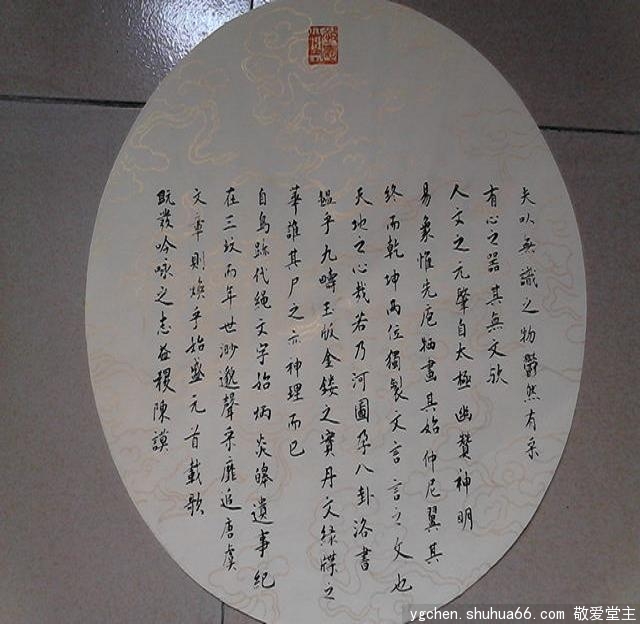 夫以無識之物鬱然有采
有心之器其無文歟
人文之元肇自太極幽贊神明
易象惟先庖犧畫其始仲尼翼其
終而乾坤兩位獨製文言言之文也
天地之心哉若乃河圖孕八卦洛書
韞乎九疇玉版金鏤之實丹文綠牒之
華誰其尸之亦神理而已
自鳥跡代繩文字始炳炎皞遺事紀
在三墳而年世渺邈聲采靡追唐虞
文章則煥乎始盛元首載歌
既發吟咏之志益稷陳謨
ygchen.shuhua66.com 敬爱堂主